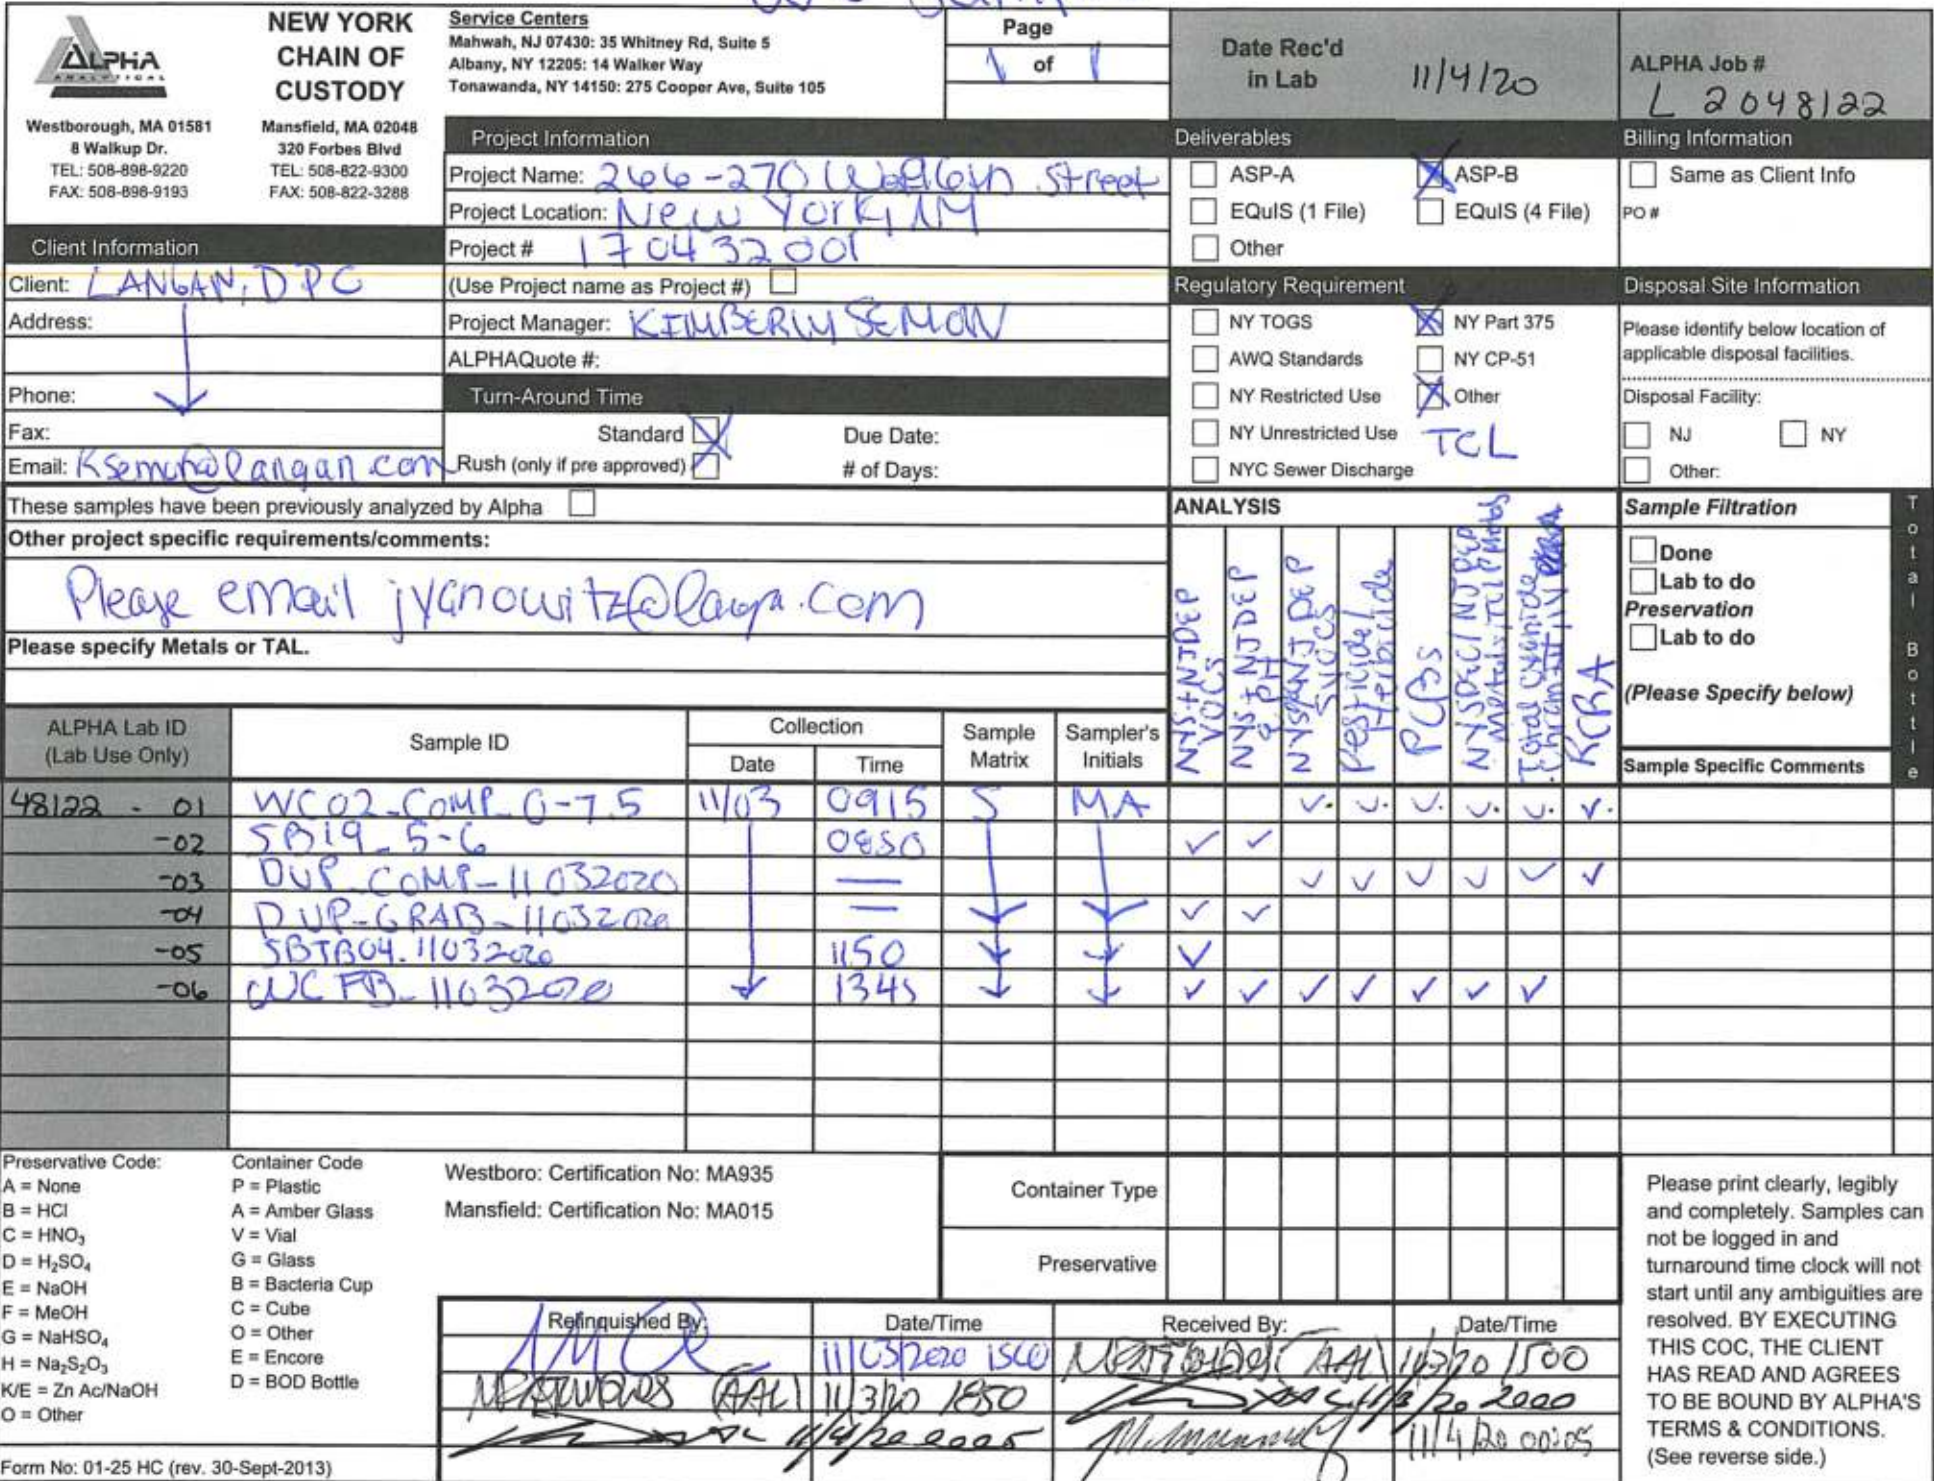 ALPHA
ANALYTICAL
Westborough, MA 01581
8 Walkup Dr.
TEL: 508-898-9220
FAX: 508-898-9193
NEW YORK
CHAIN OF
CUSTODY
Mansfield, MA 02048
320 Forbes Blvd
TEL: 508-822-9300
FAX: 508-822-3288
Service Centers
Mahwah, NJ 07430: 35 Whitney Rd, Suite 5
Albany, NY 12205: 14 Walker Way
Tonawanda, NY 14150: 275 Cooper Ave, Suite 105
Page
1 of 1
Date Rec'd
in Lab 11/4/20
ALPHA Job #
L 2048122
Client Information
Client: LANGAN, DPC
Address:
Phone:
Fax:
Email: Ksemon@langan.com
Project Information
Project Name: 266-270 Street
Project Location: New York, NY
Project # 170432001
(Use Project name as Project #)
Project Manager: KIMBERLY SEMON
ALPHAQuote #:
Turn-Around Time
Standard Due Date:
Rush (only if pre approved) # of Days:
Deliverables
ASP-A ASP-B
EQuIS (1 File) EQuIS (4 File)
Other
Regulatory Requirement
NY TOGS NY Part 375
AWQ Standards NY CP-51
NY Restricted Use Other
NY Unrestricted Use TCL
NYC Sewer Discharge
Billing Information
Same as Client Info
PO #
Disposal Site Information
Please identify below location of
applicable disposal facilities.
Disposal Facility:
NJ NY
Other:
These samples have been previously analyzed by Alpha
Other project specific requirements/comments:
Please email
Please specify Metals or TAL.
ANALYSIS
NYS+NJDEP VOCs
NYS+NJDEP EPH
NYS NJDEP SVOCS
Pesticide/Herbicide
PCBs
NYSDEC/NJDEP Metals/TCLP Metals
Total Cyanide
RCRA
Sample Filtration
Done
Lab to do
Preservation
Lab to do
(Please Specify below)
Total Bottle
ALPHA Lab ID
(Lab Use Only)
Sample ID
Collection
Date Time
Sample
Matrix
Sampler's
Initials
Sample Specific Comments
48122 - 01 WC02_COMP_0-7.5 11/03 0915 S MA ✓ ✓ ✓ ✓ ✓ ✓
-02 SB19_5-6 0850 ✓ ✓
-03 DUP_COMP-11032020 — ✓ ✓ ✓ ✓ ✓ ✓
-04 DUP-GRAB-11032020 — ✓ ✓
-05 SBTB04.11032020 1150 ✓
-06 WCFB_11032020 1345 ✓ ✓ ✓ ✓ ✓ ✓ ✓
Preservative Code:
A = None
B = HCl
C = HNO₃
D = H₂SO₄
E = NaOH
F = MeOH
G = NaHSO₄
H = Na₂S₂O₃
K/E = Zn Ac/NaOH
O = Other
Container Code
P = Plastic
A = Amber Glass
V = Vial
G = Glass
B = Bacteria Cup
C = Cube
O = Other
E = Encore
D = BOD Bottle
Westboro: Certification No: MA935
Mansfield: Certification No: MA015
Container Type
Preservative
Relinquished By: Date/Time Received By: Date/Time
11/03/2020 1500 (AAL) 11/3/20 1500
(AAL) 11/3/20 1850 11/3/20 2000
11/4/20 0005 11/4/20 00:05
Please print clearly, legibly
and completely. Samples can
not be logged in and
turnaround time clock will not
start until any ambiguities are
resolved. BY EXECUTING
THIS COC, THE CLIENT
HAS READ AND AGREES
TO BE BOUND BY ALPHA'S
TERMS & CONDITIONS.
(See reverse side.)
Form No: 01-25 HC (rev. 30-Sept-2013)